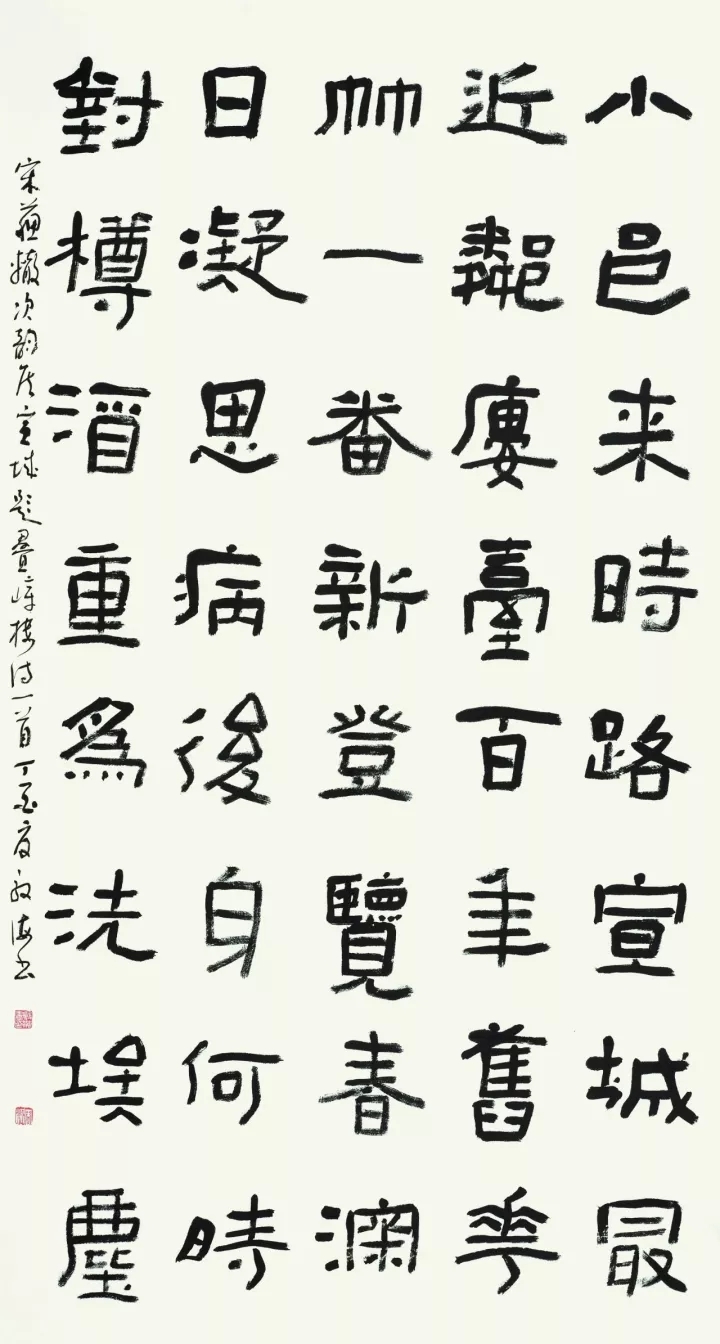 小邑来時路宣城最
近鄰廔臺百年舊華
竹一番新登覽春深
日凝思病後身何時
對樽酒重爲洗埃塵
宋蘇轍次韻侯宣城題疊嶂樓詩一首丁酉夏海书